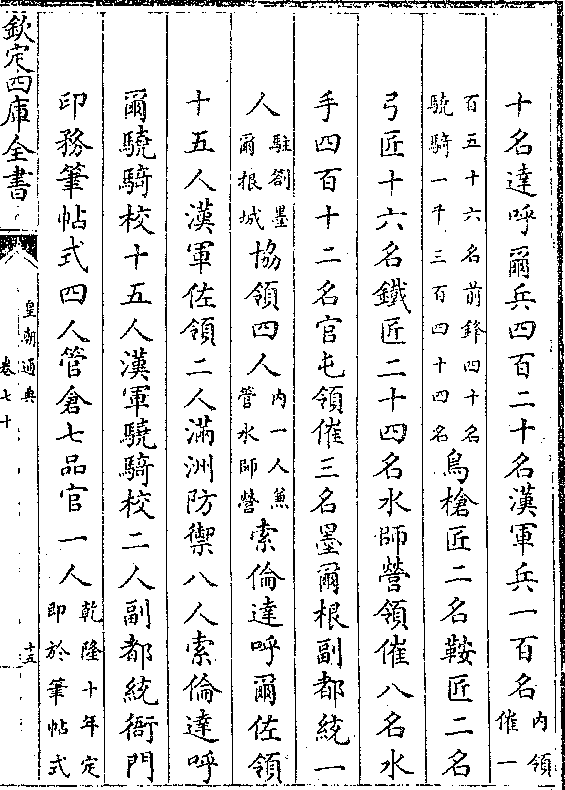 十名達呼爾兵四百二十名漢軍兵一百名內領催一
百五十六名前鋒四十名驍騎一千三百四十四名鳥槍匠二名鞍匠二名
弓匠十六名鐵匠二十四名水師營領催八名水
手四百十二名官屯領催三名墨爾根副都統一
人駐劄墨爾根城協領四人內一人兼管水師營索倫達呼爾佐領
十五人漢軍佐領二人滿洲防禦八人索倫達呼
爾驍騎校十五人漢軍驍騎校二人副都統衙門
印務筆帖式四人管倉七品官一人乾隆十年定即於筆帖式
欽定四庫全書
皇朝通典
卷七十
十五